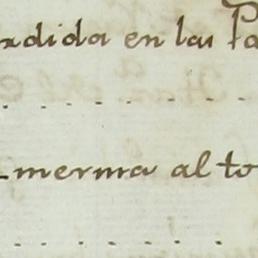 xdida en las Pa
merma al to